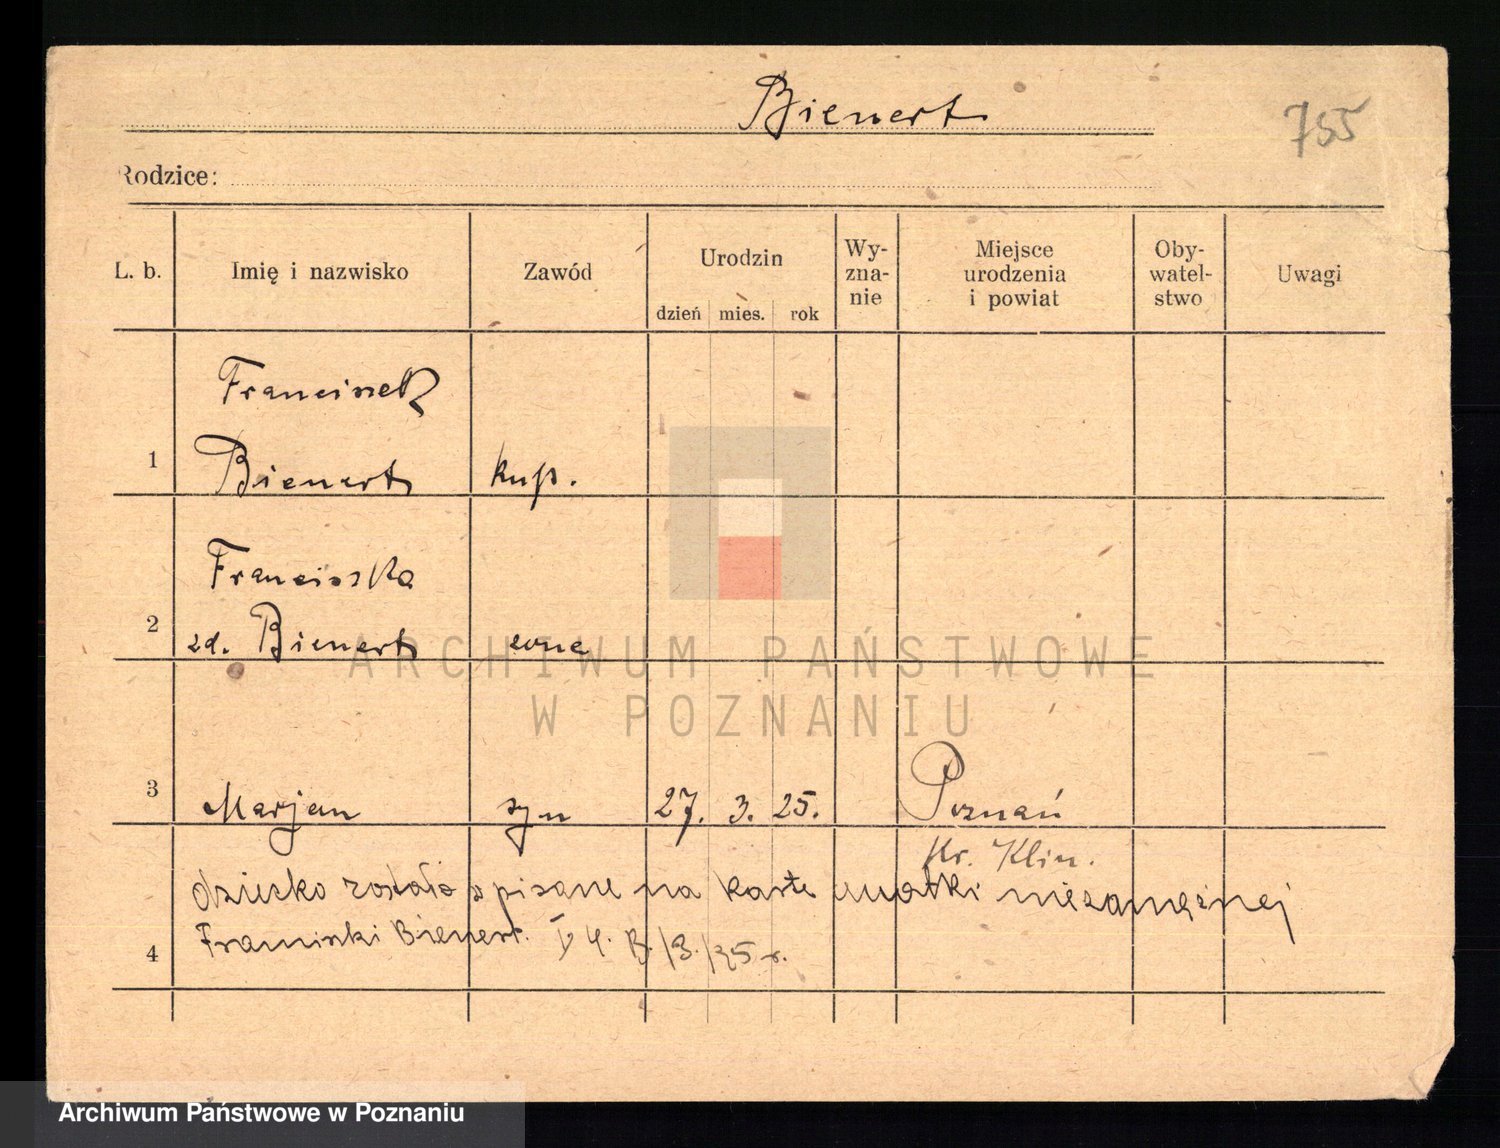 Bienert
755
Rodzice:
L. b. Imię i nazwisko Zawód Urodzin dzień mies. rok Wy-zna-nie Miejsce urodzenia i powiat Oby-watel-stwo Uwagi
Franciszek
1 Bienert kup.
Franciszka
2 zd. Bienert żona
3 Marjan syn 27. 3. 25. Poznań
Kr. Klin.
dziecko zostało spisane na karte matki niezamężnej
Franciszki Bienert.
4
ARCHIWUM PAŃSTWOWE
W POZNANIU
Archiwum Państwowe w Poznaniu